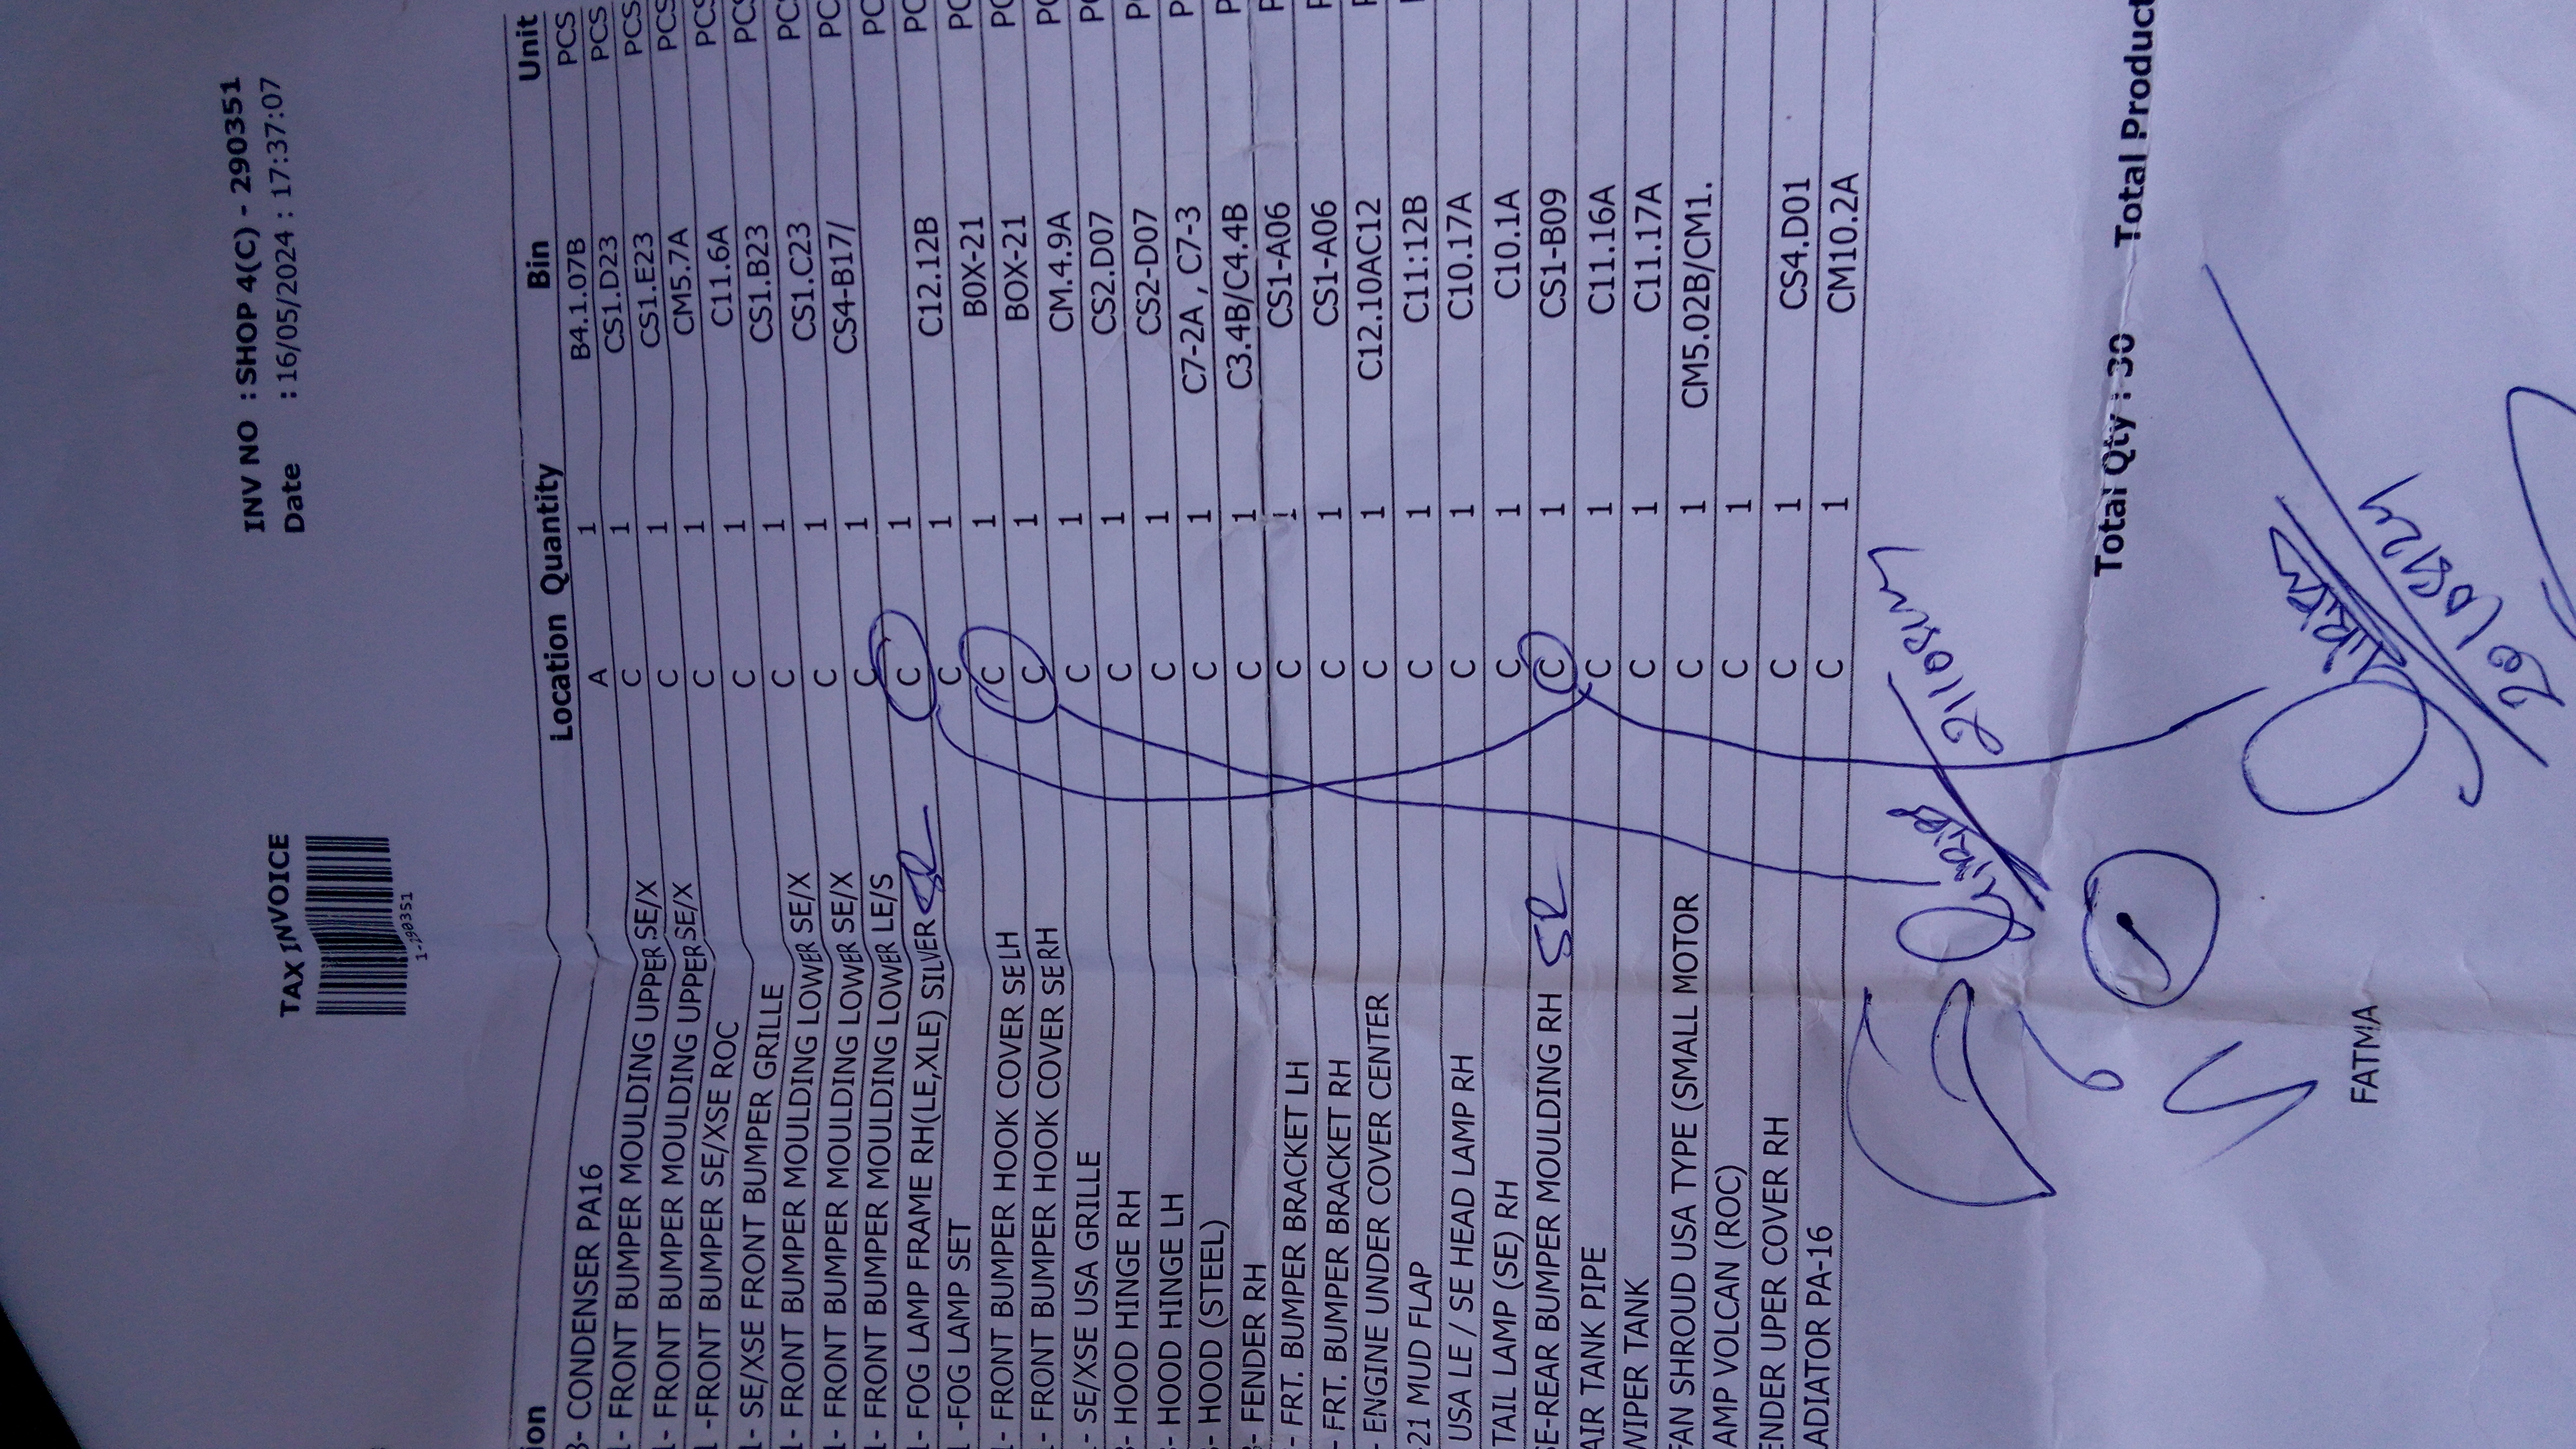 TAX INVOICE INV NO : SHOP 4(C) - 290351
Date : 16/05/2024 : 17:37:07
ion Location Quantity Bin Unit
3- CONDENSER PA16 A 1 B4.1.07B PCS
1- FRONT BUMPER MOULDING UPPER SE/X C 1 CS1.D23 PCS
1- FRONT BUMPER MOULDING UPPER SE/X C 1 CS1.E23 PCS
1 -FRONT BUMPER SE/XSE ROC C 1 CM5.7A PCS
1- SE/XSE FRONT BUMPER GRILLE C 1 C11.6A PCS
1- FRONT BUMPER MOULDING LOWER SE/X C 1 CS1.B23 PCS
1- FRONT BUMPER MOULDING LOWER SE/X C 1 CS1.C23 PCS
1- FRONT BUMPER MOULDING LOWER LE/S C 1 CS4-B17/ PCS
1- FOG LAMP FRAME RH(LE,XLE) SILVER SR C 1 PC
1 -FOG LAMP SET C 1 C12.12B PC
1- FRONT BUMPER HOOK COVER SE LH C 1 BOX-21 PC
1- FRONT BUMPER HOOK COVER SE RH C 1 BOX-21 PC
- SE/XSE USA GRILLE C 1 CM.4.9A PC
- HOOD HINGE RH C 1 CS2.D07 PC
- HOOD HINGE LH C 1 CS2-D07 P
- HOOD (STEEL) C 1 C7-2A , C7-3 P
- FENDER RH C 1 C3.4B/C4.4B P
- FRT. BUMPER BRACKET LH C 1 CS1-A06
- FRT. BUMPER BRACKET RH C 1 CS1-A06
- ENGINE UNDER COVER CENTER C 1 C12.10AC12
-21 MUD FLAP C 1 C11:12B
USA LE / SE HEAD LAMP RH C 1 C10.17A
TAIL LAMP (SE) RH C 1 C10.1A
SE-REAR BUMPER MOULDING RH SR C 1 CS1-B09
AIR TANK PIPE C 1 C11.16A
WIPER TANK C 1 C11.17A
FAN SHROUD USA TYPE (SMALL MOTOR C 1 CM5.02B/CM1.
AMP VOLCAN (ROC) C 1
ENDER UPER COVER RH C 1 CS4.D01
ADIATOR PA-16 C 1 CM10.2A
Total Qty : 30 Total Product
FATMA